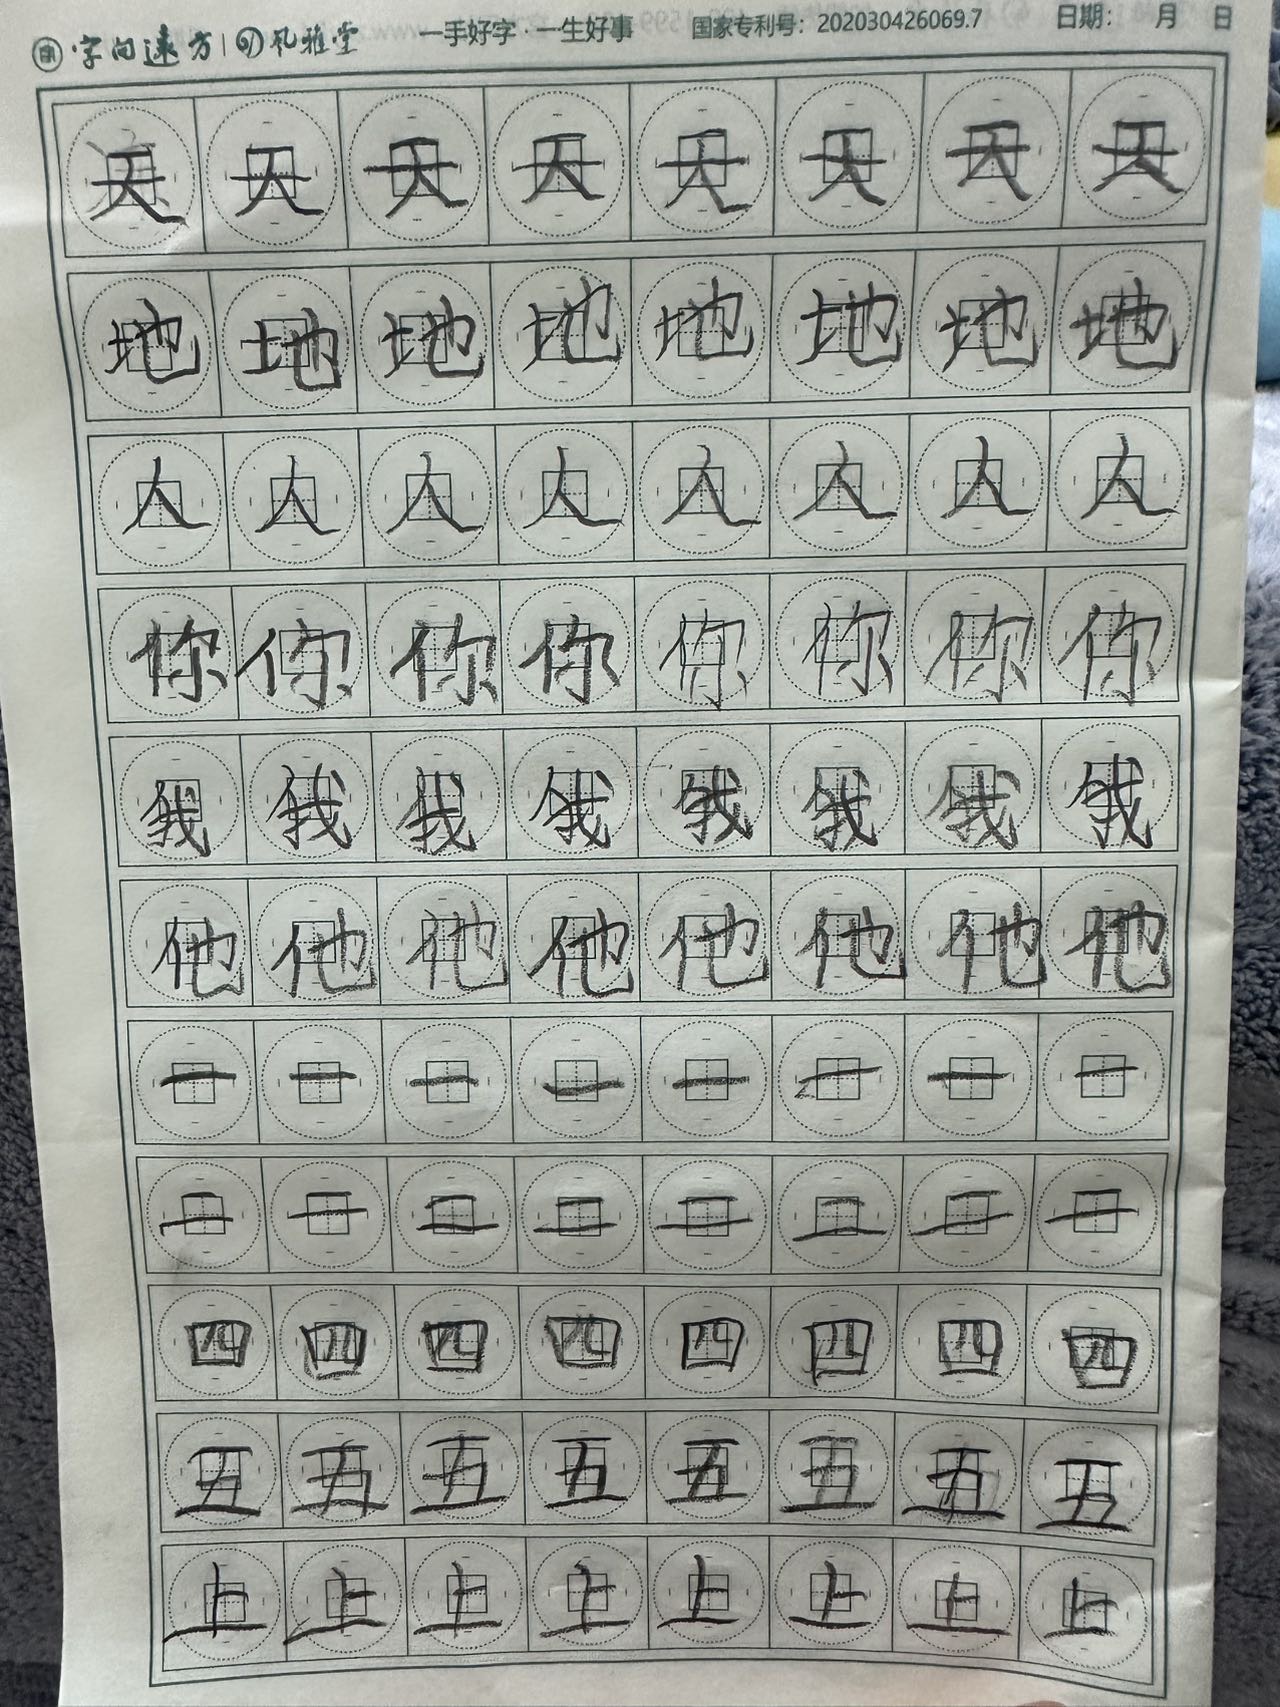 字向远方 | 风雅堂 一手好字·一生好事 国家专利号：202030426069.7 日期： 月 日
天 天 天 天 天 天 天 天
地 地 地 地 地 地 地 地
人 人 人 人 人 人 人 人
你 你 你 你 你 你 你 你
我 我 我 我 我 我 我 我
他 他 他 他 他 他 他 他
一 一 一 一 一 一 一 一
二 二 二 二 二 二 二 二
四 四 四 四 四 四 四 四
五 五 五 五 五 五 五 五
上 上 上 上 上 上 上 上